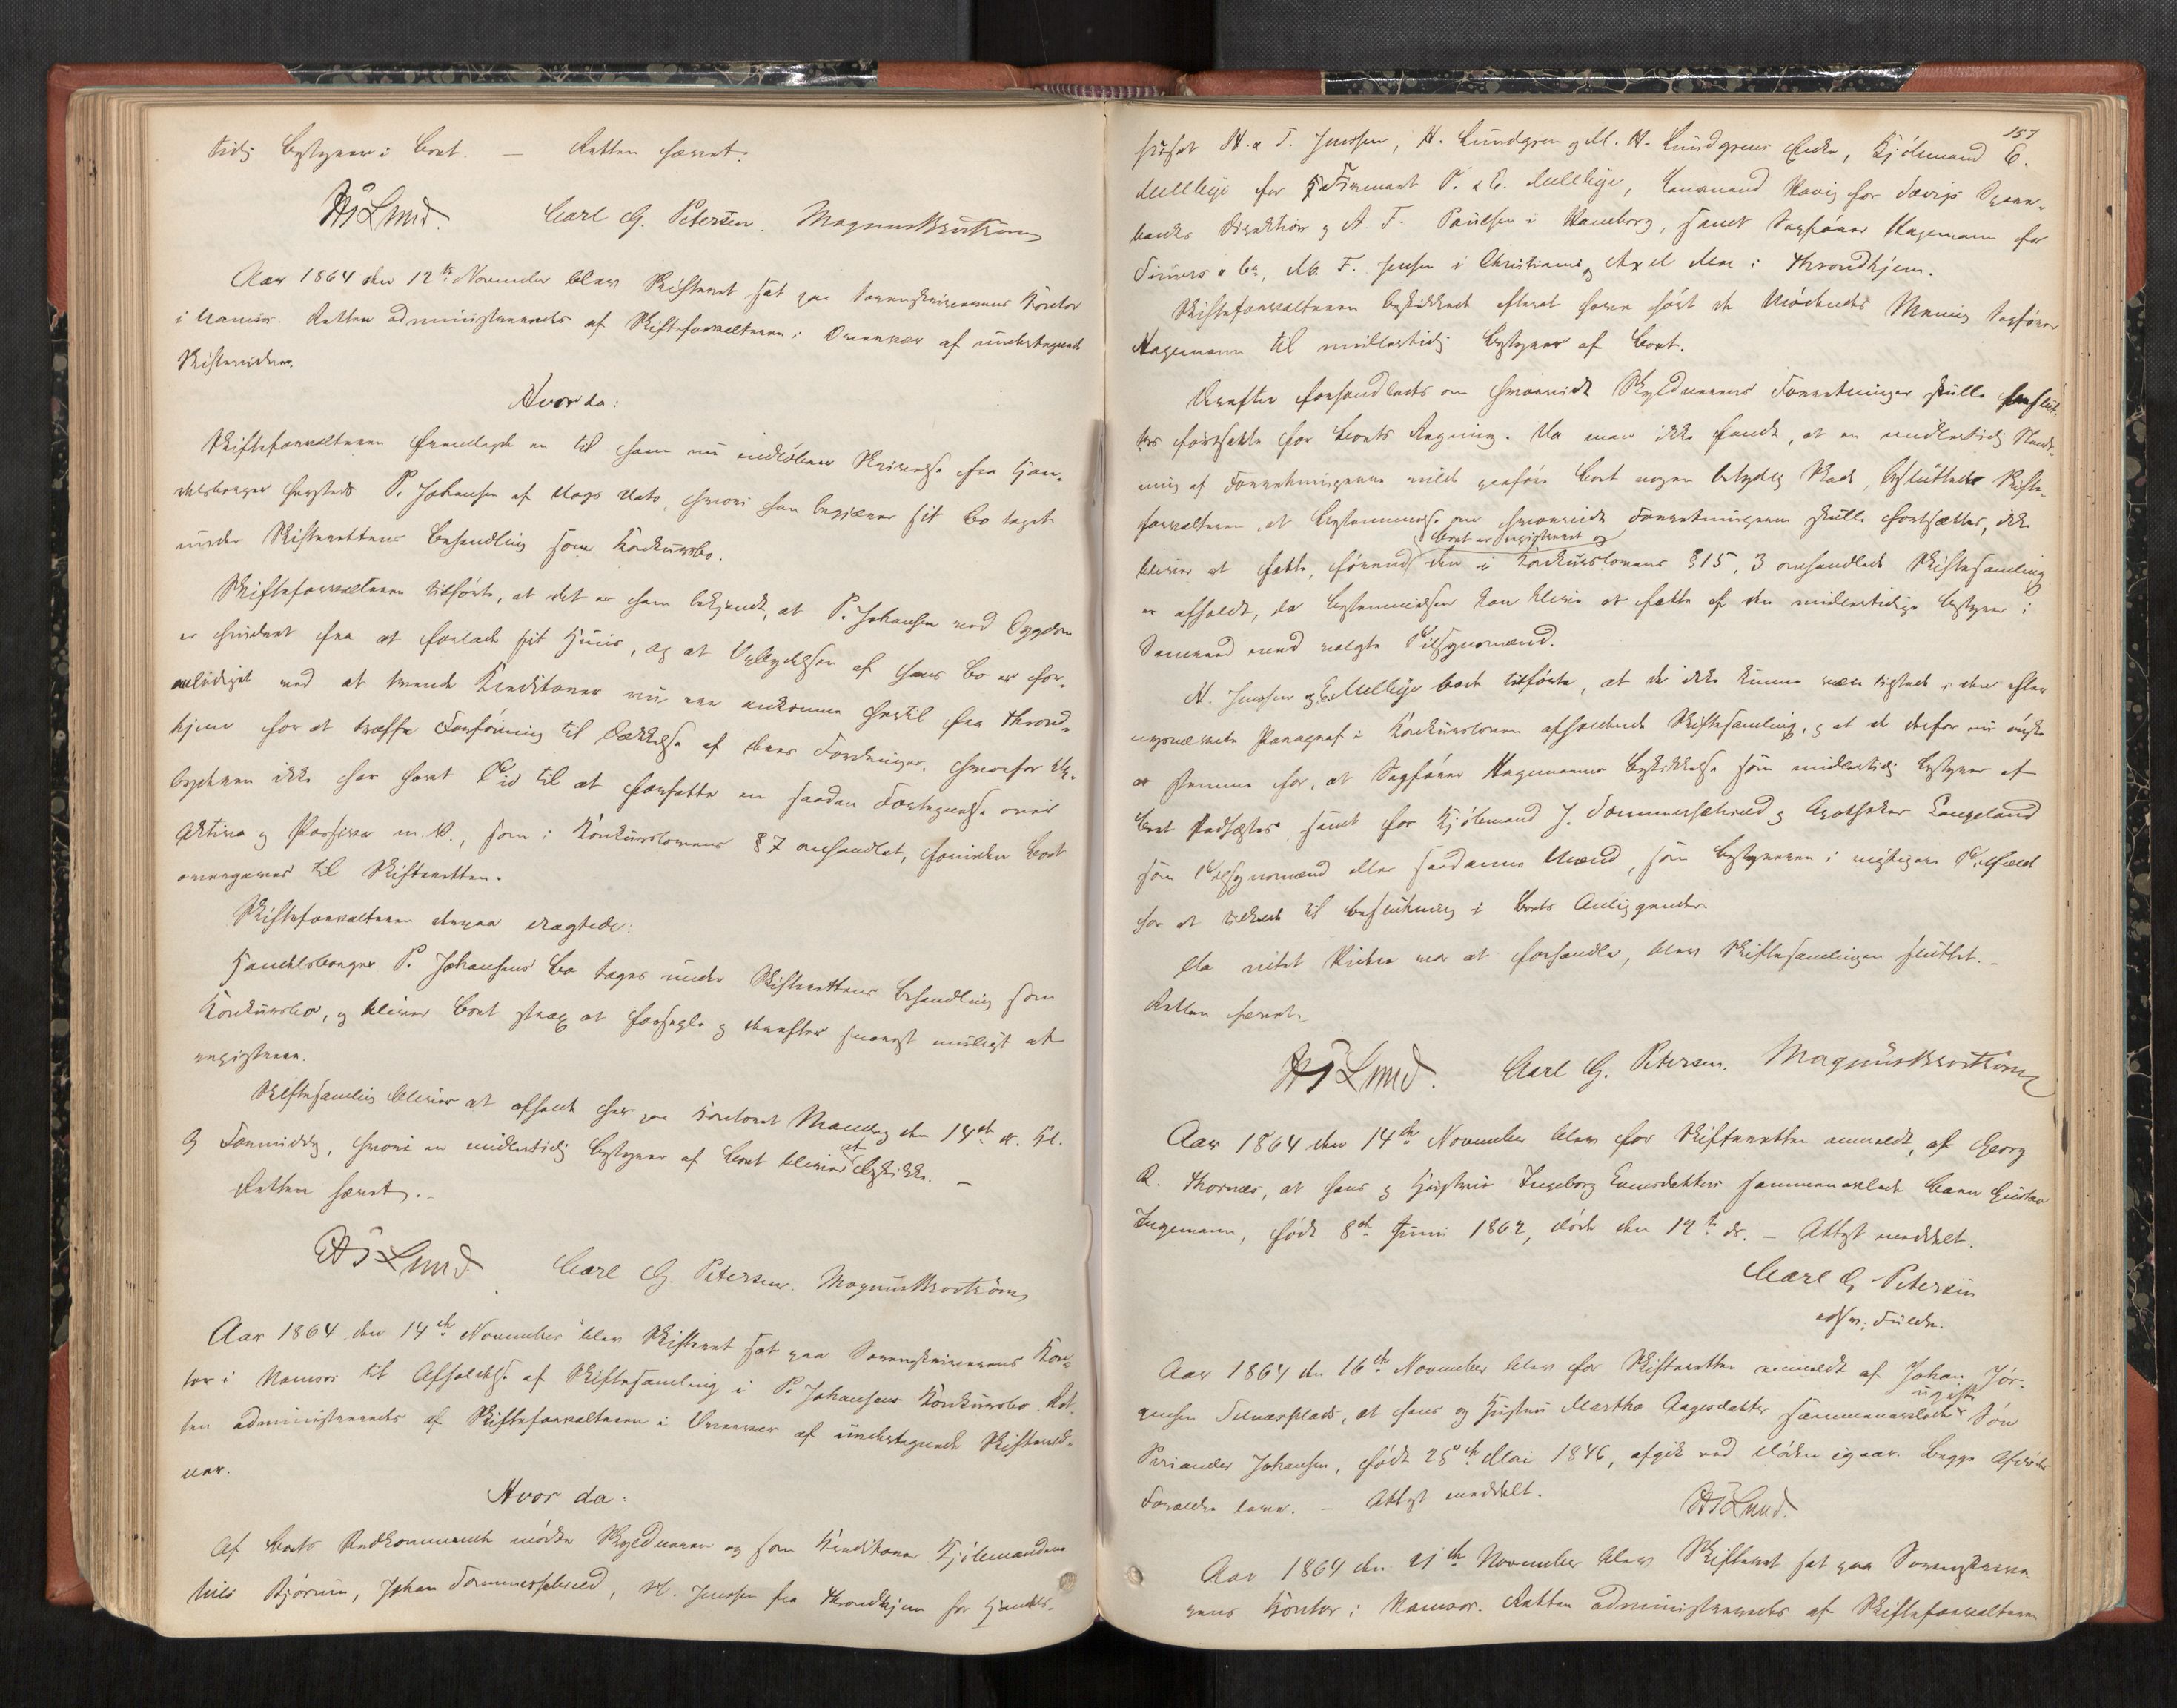 tidig Bestyrer i Boet. — Retten hævet.
Lund. Carl G. Petersen. Magnus Brostrøm
Aar 1864 den 12te November blev Skifteret sat paa Sorenskriverens Kontor
i Namsos. Retten administreredes af Skifteforvalteren i Overvær af undertegnede
Skiftevidner.
Hvor da:
Skifteforvalteren fremlagde en til ham nu indløben Skrivelse fra Han-
delsborger hersteds P. Johansen af Dags Dato, hvori han begjærer sit Bo taget
under Skifterettens Behandling som Konkursbo.
Skifteforvalteren tilførte, at det er ham bekjendt, at P. Johansen ved Sygdom
er hindret fra at forlade sit Huus, og at Opbydelsen af hans Bo er for-
anlediget ved at tvende Kreditorer nu ere ankomne hertil fra Thrond-
hjem for at træffe Forføining til Dækkelse af deres Fordringer, hvorfor Op-
byderen ikke har havt Tid til at forfatte en saadan Fortegnelse over
Aktiva og Passiva m. V., som i Konkurslovens § 7 omhandlet, forinden Boet
overgaves til Skifteretten.
Skifteforvalteren derpaa eragtede:
Handelsborger P. Johansens Bo tages under Skifterettens Behandling som
Konkursbo, og bliver Boet strax at forsegle og derefter snarest muligt at
registrere.
Skiftesamling bliver at afholde her paa Kontoret Mandag den 14de ds. Kl.
9 Formiddag, hvori en midlertidig Bestyrer af Boet bliver at beskikke. —
Retten hævet. –
Lund Carl G. Petersen. Magnus Brostrøm
Aar 1864 den 14de November blev Skifteret sat paa Sorenskriverens Kon-
tor i Namsos til Afholdelse af Skiftesamling i P. Johansens Konkursbo. Ret-
ten administreredes af Skifteforvalteren i Overvær af undertegnede Skiftevid-
ner.
Hvor da:
Af Boets Vedkommende mødte Skyldneren og som Kreditorer Kjøbmændene
Nils Bjørum, Johan Sommerschield, H. Jenssen fra Throndhjem for Handels-
157
huset H. & T. Jenssen, H. Lundgren og M. H. Lundgrens Enke, Kjøbmand E.
Mellbye for Firmaet P. & E. Mellbye, Lensmand Havig for Værigs Spare-
banks Direktion og A. F. Paulsen i Hamborg, samt Sagfører Hagemann for
& Co, M. F. Jensen i Christiania og Axel Moe i Throndhjem.
Skifteforvalteren beskikkede efterat have hørt de Mødendes Mening Sagfører
Hagemann til midlertidig Bestyrer af Boet.
Derefter forhandledes om hvorvidt Skyldnerens Forretninger skulle
fortsættes for Boets Regning. Da man ikke fandt, at en midlertidig Stands-
ning af Forretningerne vilde paaføre Boet nogen betydelig Skade, besluttede Skifte-
forvalteren, at Bestemmelse om hvorvidt Forretningerne skulle fortsættes, ikke
Boet er registreret og
bliver at fatte, førend den i Konkurslovens § 15, 3 omhandlede Skiftesamling
er afholdt, da Bestemmelsen kan blive at fatte af den midlertidige Bestyrer i
Samraad med valgte Tilsynsmænd.
H. Jenssen og E. Mellbye lod tilføre, at de ikke kunne være tilstede i den efter
nysnævnte Paragraf i Konkursloven afholdende Skiftesamling, og at de derfor nu ønske
at stemme for, at Sagfører Hagemanns Beskikkelse som midlertidig Bestyrer af
Boet stadfæstes, samt for Kjøbmand J. Sommerschield og Apotheker Langeland
som Tilsynsmænd eller saadanne Mænd, som Bestyreren i vigtigere Tilfælde
har at tilkalde til Beslutning i Boets Anliggender.
Da intet Videre var at forhandle, blev Skiftesamlingen sluttet. –
Retten hævet.
Lund. Carl G. Petersen. Magnus Brostrøm
Aar 1864 den 14de November blev for Skifteretten anmeldt, af Georg
R. Thornæs, at hans og Hustru Ingeborg Evensdatters sammenavlede Barn Gustav
Ingemann, født 8de Juni 1862, døde den 12te ds. — Attest meddelt.
Carl G Petersen
edsv. Fuldm.
Aar 1864 den 16de November blev for Skifteretten anmeldt af Johan Jør-
ugifte
gensen, at hans og Hustru Martha Aagesdatter sammenavlede Søn
Johansen, født 28de Mai 1846, afgik ved Døden igaar. Begge Afdødes
Forældre lever. — Attest meddelt.
Lund.
Aar 1864 den 21de November blev Skifteret sat paa Sorenskrive-
rens Kontor i Namsos. Retten administreredes af Skifteforvalteren